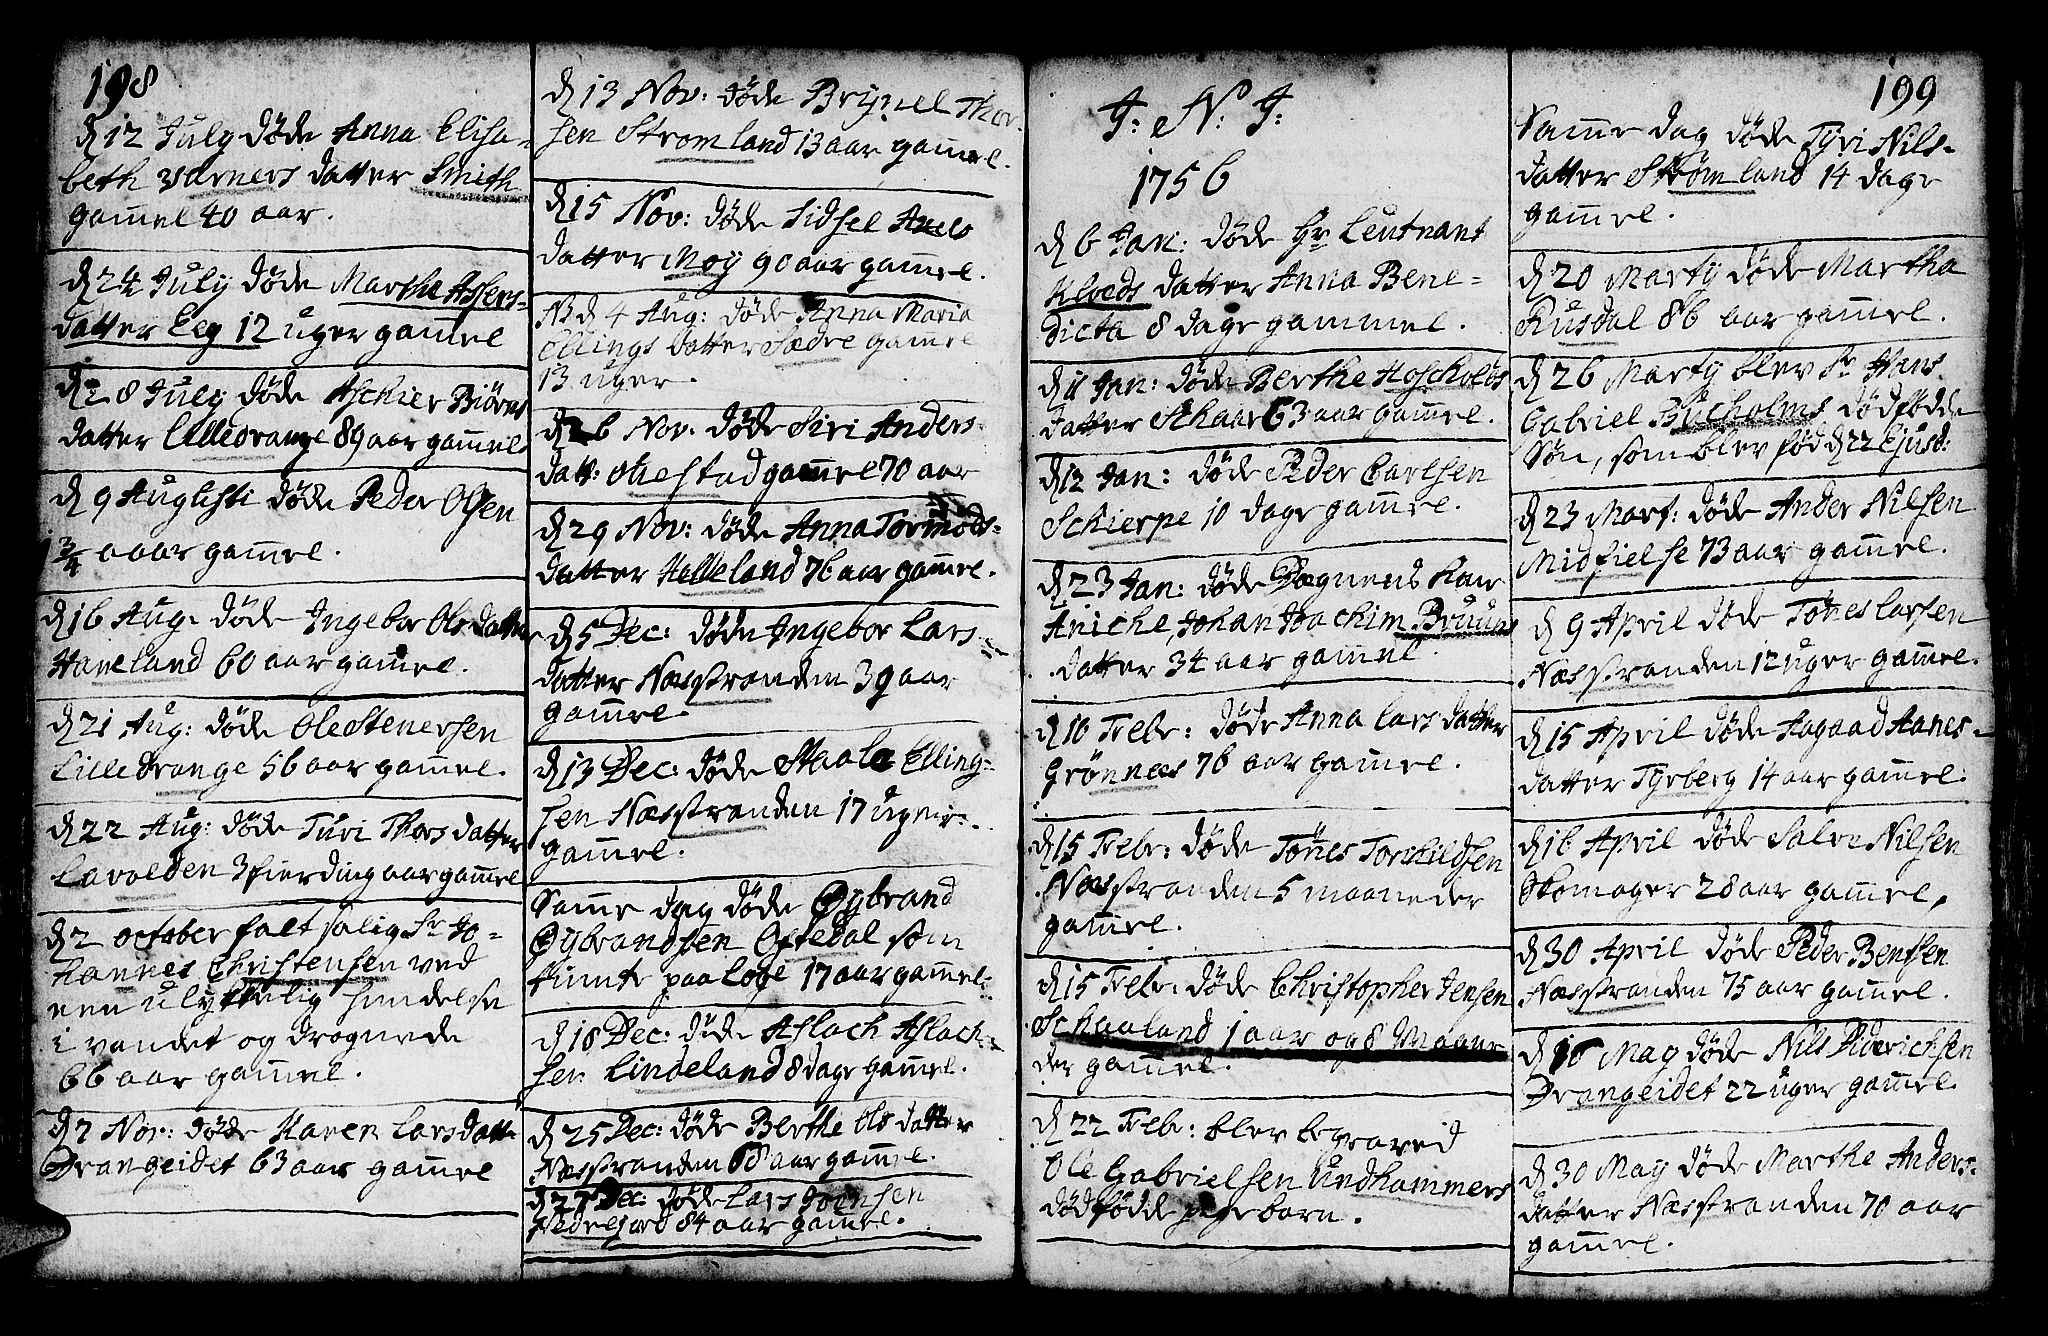 198
d 12 July døde Anna Elisa-
beth Varners datter Smith
gam̄el 40 aar.
d 24 July døde Marthe Assers-
datter Eeg 12 uger gam̄el
d 28 July døde Aschier Biörns
datter Lilledrange 89 aar gam̄el
d 9 Augusti døde Peder Olsen
1 3/4 aaar gam̄el.
d 16 Aug: døde Ingebor Ols datter
Haneland 60 aar gam̄el.
d 21 Aug: døde Ole Stenersen
Lille Drange 56 aar gam̄el.
d 22 Aug: døde Turi Thors datter
Lavolden 3 fierding aar gam̄el
d 2 october falt salig Sr Jo-
hannes Christensen ved
een ulykkelig hendelse
i vandet og drognede
66 aar gam̄el.
d 7 Nov: døde Karen Larsdatt:
Drangeidet 63 aar gam̄el
d 13 Nov: døde Brynel Thor-
sen Stromland 13 aar gam̄el.
d 15 Nov: døde Sidsel Axels
datter Moy 90 aar gam̄el.
NB d 4 Aug: døde Anna Maria
Ellings datter Sædre gam̄el
13 uger.
d 26 Nov: døde Siri Anders-
datt: Ollestad gam̄el 70 aar
d 29 Nov: døde Anna Tormods-
datter Helleland 76 aar gam̄el.
d 5 Dec: døde Ingebor Lars-
datter Næsstranden 39 aar
gam̄el
d 13 Dec: døde Staale Elling-
sen Næsstranden 17 uger
gam̄el.
Sam̄e dag døde Øybrand
Øybrandsen Oftedal som
tiente paa Loge 17 aar gam̄el.
d 18 Dec: døde Aslach Aslach-
sen Lindeland 8 dage gam̄el.
d 25 Dec: døde Berthe Ols datter
Næsstranden 68 aar gam̄el.
d 27 Dec: døde Lars Joensen
Hedregard 84 aar gam̄el.
J: N: J:
1756
d 6 Jan: døde Hr Leutnant
Kloeds datter Anna Bene-
dicta 8 dage gammel.
d 11 Jan: døde Berthe Hoscholds
datter Skaar 63 aar gam̄el.
d 12 Jan: døde Peder Carlsen
Schierpe 10 dage gam̄el.
d 23 Jan: døde Degnens Kar
Aniche, Johan Joachim Bruuns
datter 34 aar gam̄el.
d 10 Febr: døde Anna Lars datter
Grönnes 76 aar gam̄el.
d 15 Febr: døde Tönes Torkildsen
Næsstranden 5 maaneder
gam̄el.
d 15 Febr: døde Christopher Jensen
Schaaland 1 aar og 8 Maane
der gam̄el.
d 22 Febr: blev begraved
Ole Gabrielsen Undhammers
dödfödde pigebarn.
199
Sam̄e dag døde Tyri Nils-
datter Strømland 14 dage
gam̄el.
d 20 Marty døde Martha
Rusdal 86 aar gam̄el.
d 26 Marty blev Sr Hans
Gabriel Bucholms dødfødde
Sön, som blev fød d 22 Ejusd:
d 23 Mart: døde Ander Nilsen
Midfielse 73 aar gam̄el.
d 9 April døde Tönes Larsen
Næsstranden 12 uger gam̄el.
d 15 April døde Aagaad Aanes-
datter Tyrberg 14 aar gam̄el.
d 16 April døde Salve Nilsen
Skomager 28 aar gam̄el,
d 30 April døde Peder Bentsen
Næsstranden 75 aar gam̄el.
d 16 May døde Nils Diderichsen
Drangeidet 22 uger gam̄el.
d 30 May døde Marthe Anders-
datter Næsstranden 70 aar
gam̄el.